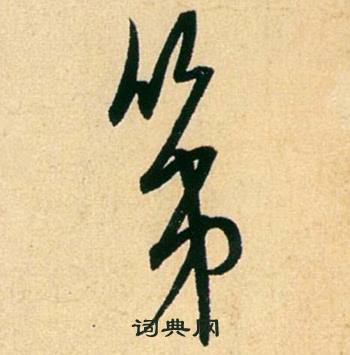 第
词典网